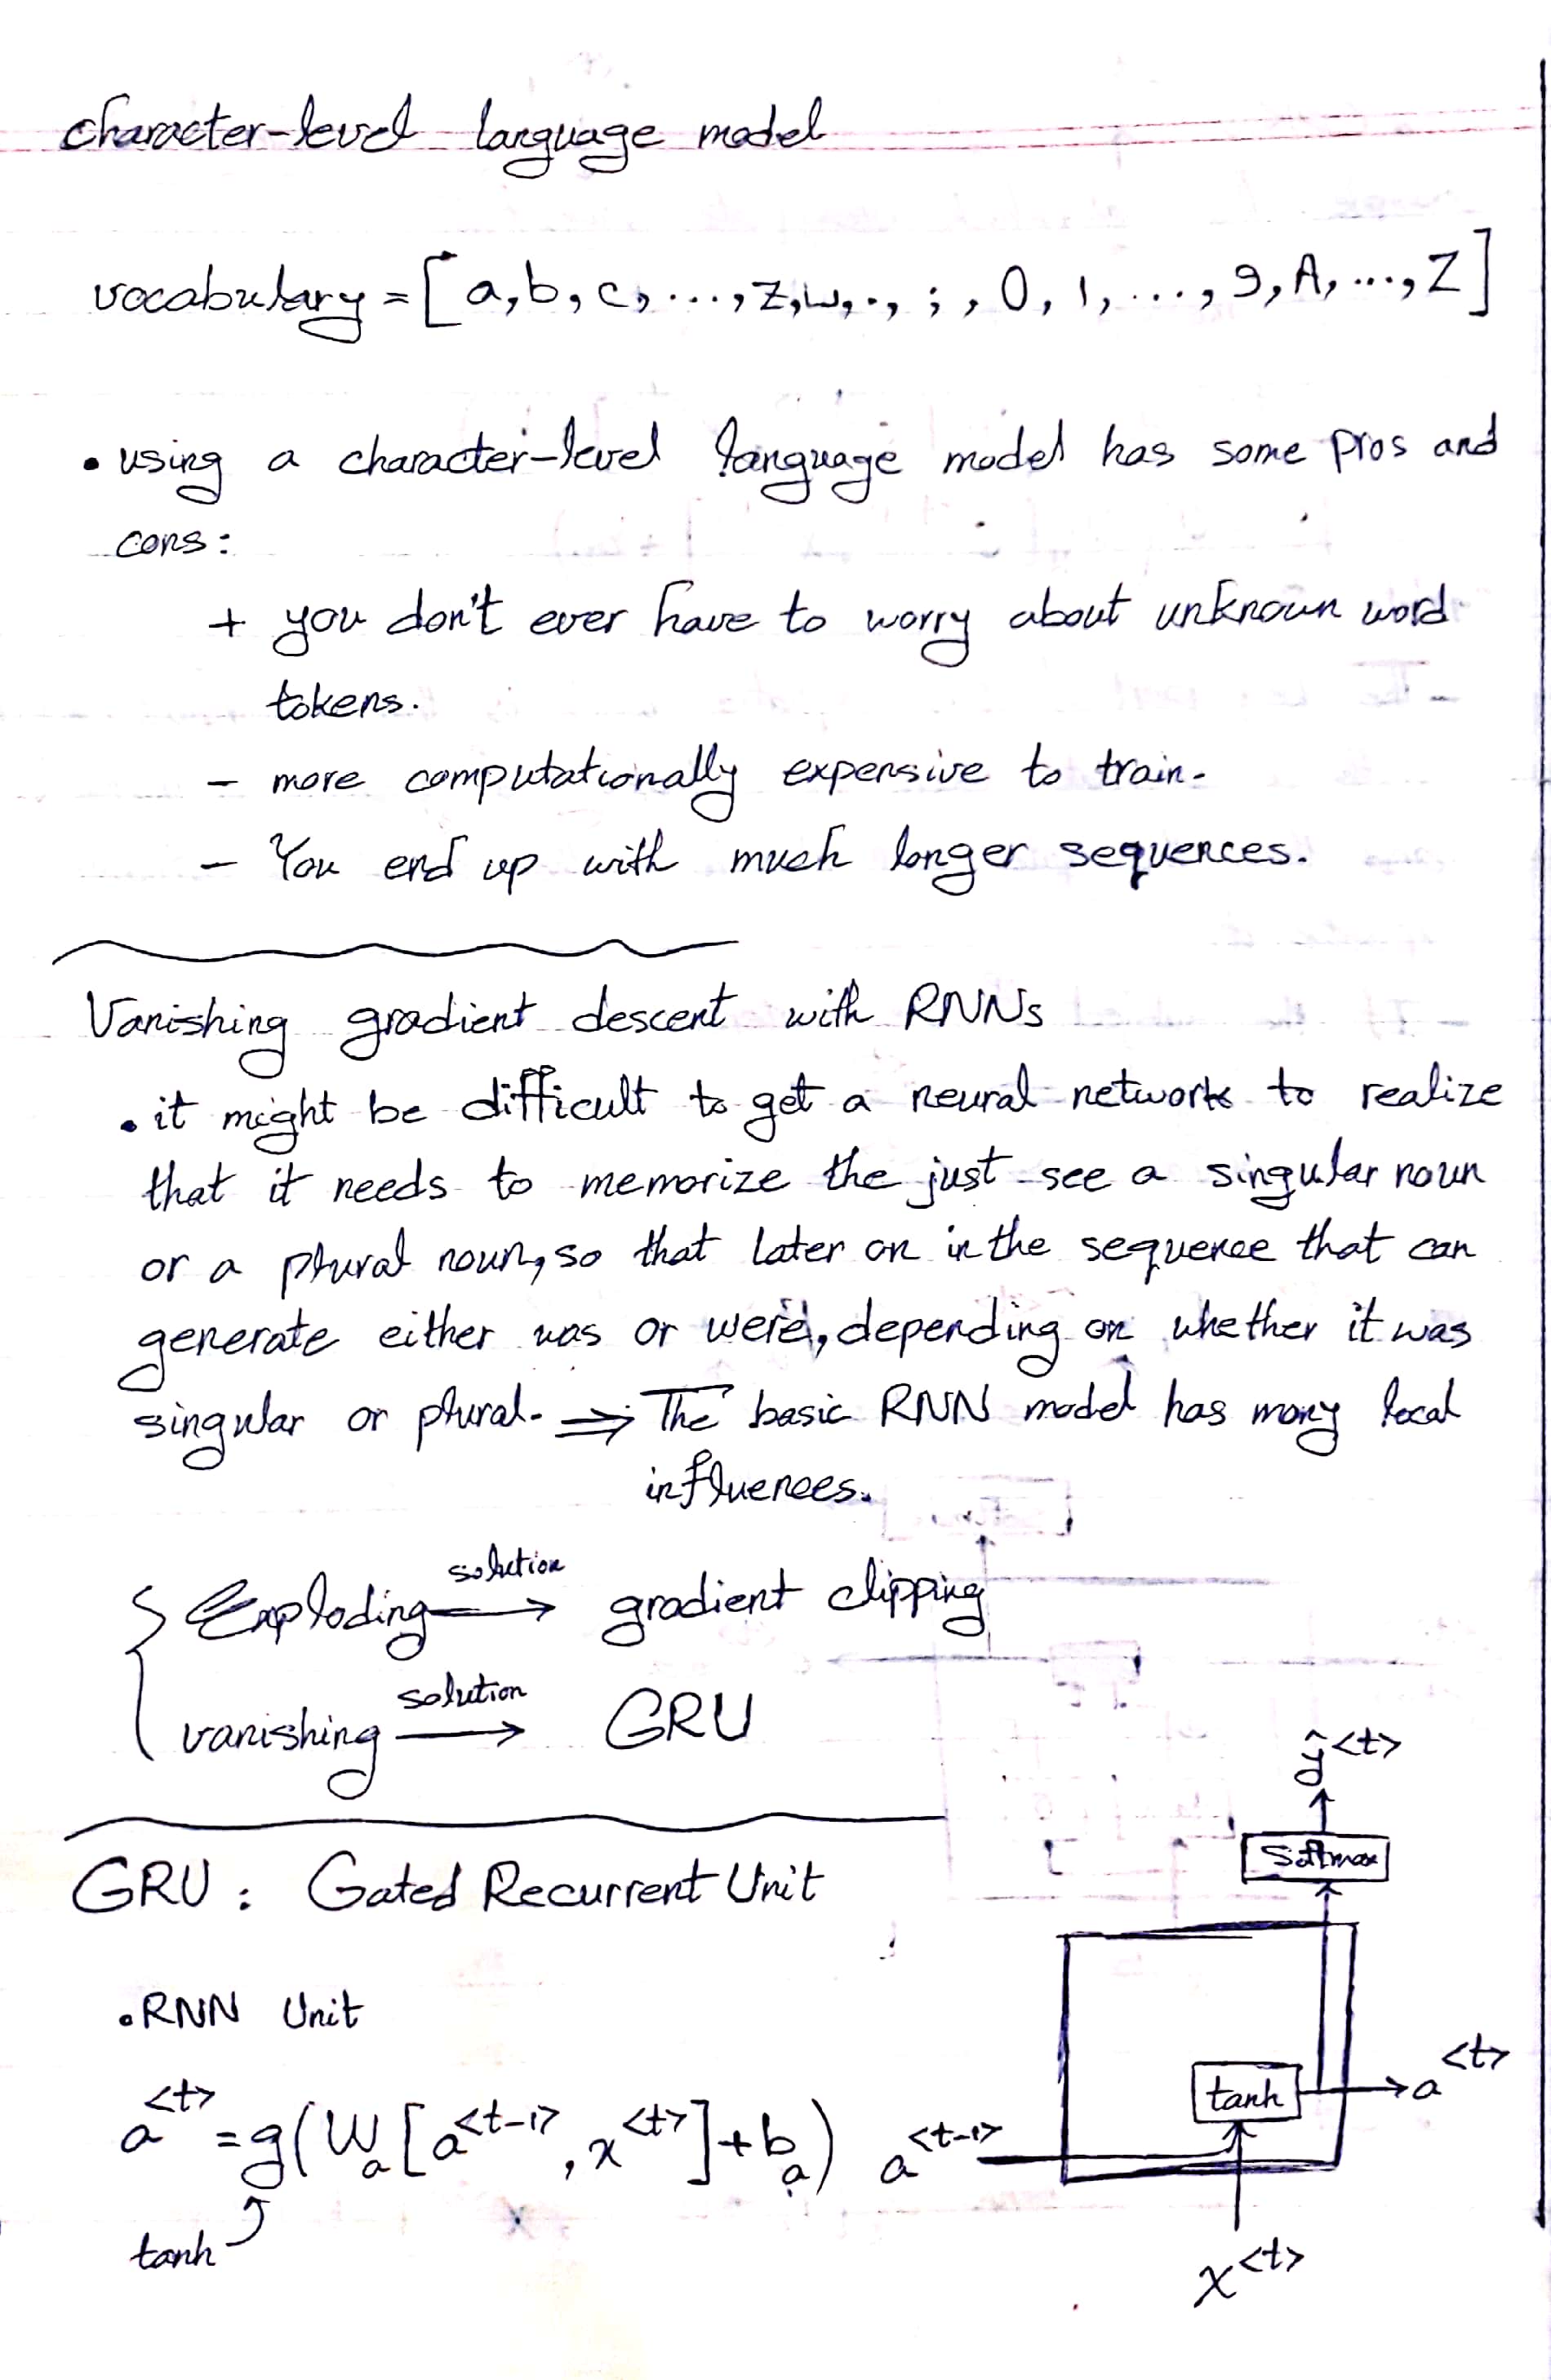 character-level language model
vocabulary = [a, b, c, ..., z, ␣, ., ; , 0, 1, ..., 9, A, ..., Z]
• using a character-level language model has some pros and
cons:
+ you don't ever have to worry about unknown word
tokens.
- more computationally expensive to train.
- You end up with much longer sequences.
Vanishing gradient descent with RNNs
• it might be difficult to get a neural network to realize
that it needs to memorize the just see a singular noun
or a plural noun, so that later on in the sequence that can
generate either was or were, depending on whether it was
singular or plural. ⇒ The basic RNN model has many local
influences.
Exploding —solution→ gradient clipping
vanishing —solution→ GRU
GRU : Gated Recurrent Unit
ŷ<t>
Softmax
• RNN Unit
tanh
a<t>
a<t> = g(Wa[a<t-1>, x<t>] + ba)
a<t-1>
tanh
x<t>